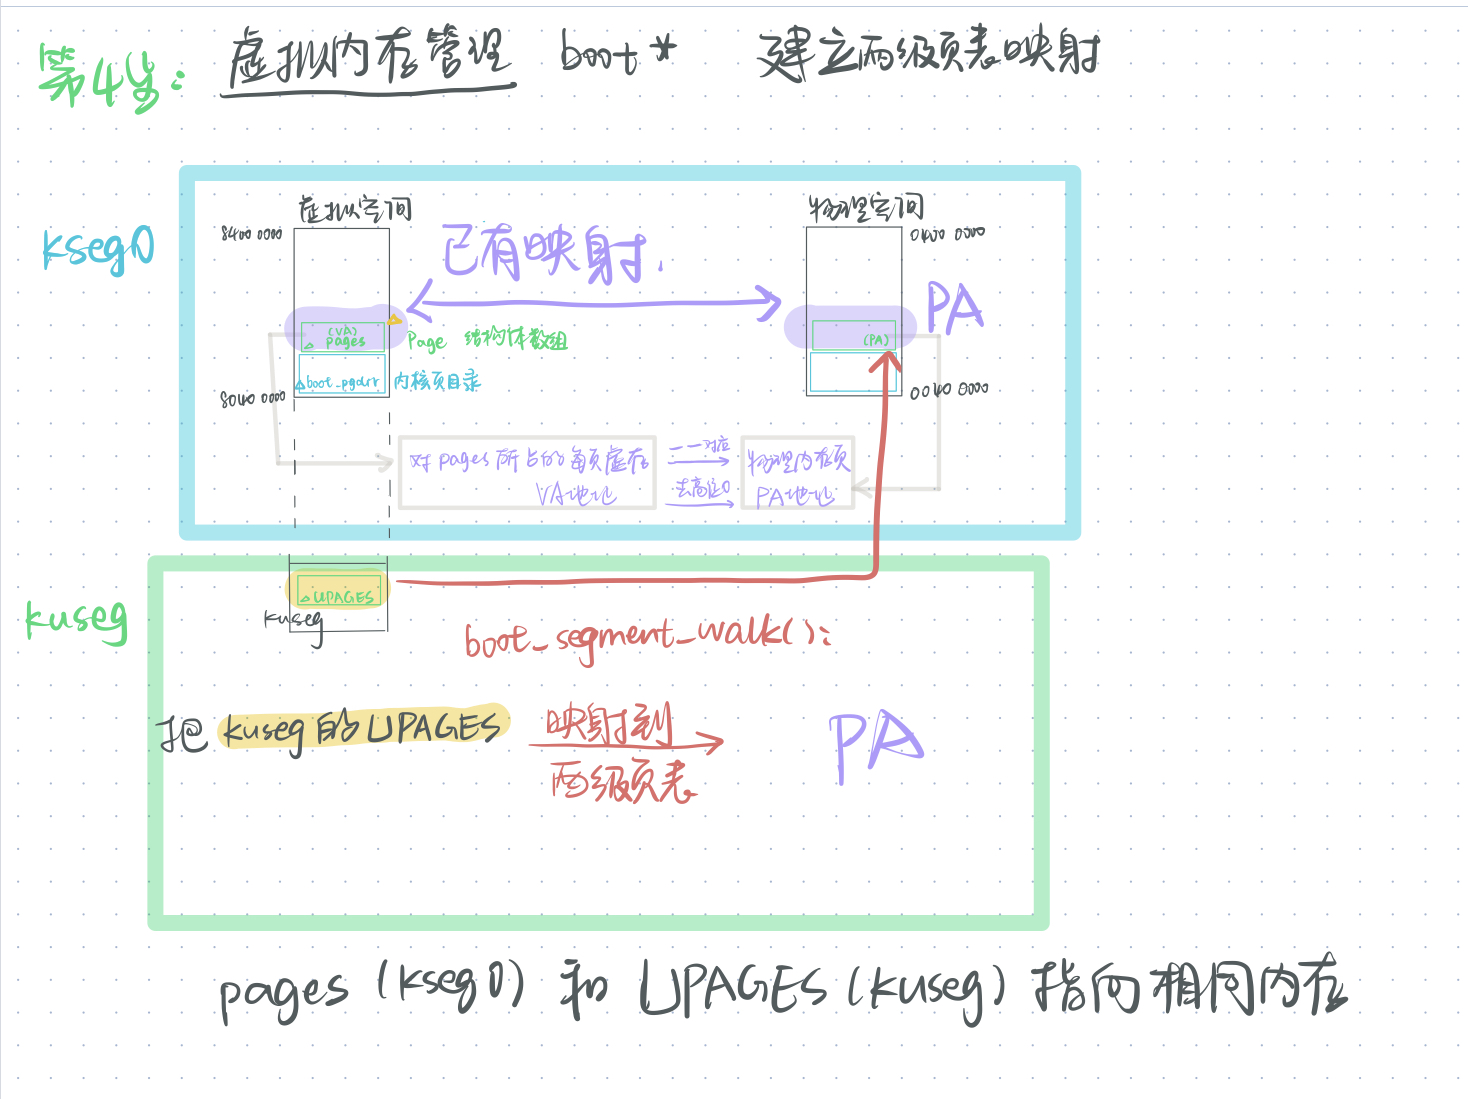 第4步: 虚拟内存管理 boot* 建立两级页表映射
kseg0
虚拟空间
物理空间
8400 0000
0400 0000
已有映射.
PA
(VA)
pages
Page 结构体数组
(PA)
boot_pgdir 内核页目录
8040 0000
0040 0000
对pages所占的每页虚存
VA地址
一一对应
去高位0
物理内存页
PA地址
kuseg
UPAGES
kuseg
boot_segment_walk():
把 kuseg的UPAGES 映射到 PA
两级页表
pages (kseg0) 和 UPAGES (kuseg) 指向相同内存